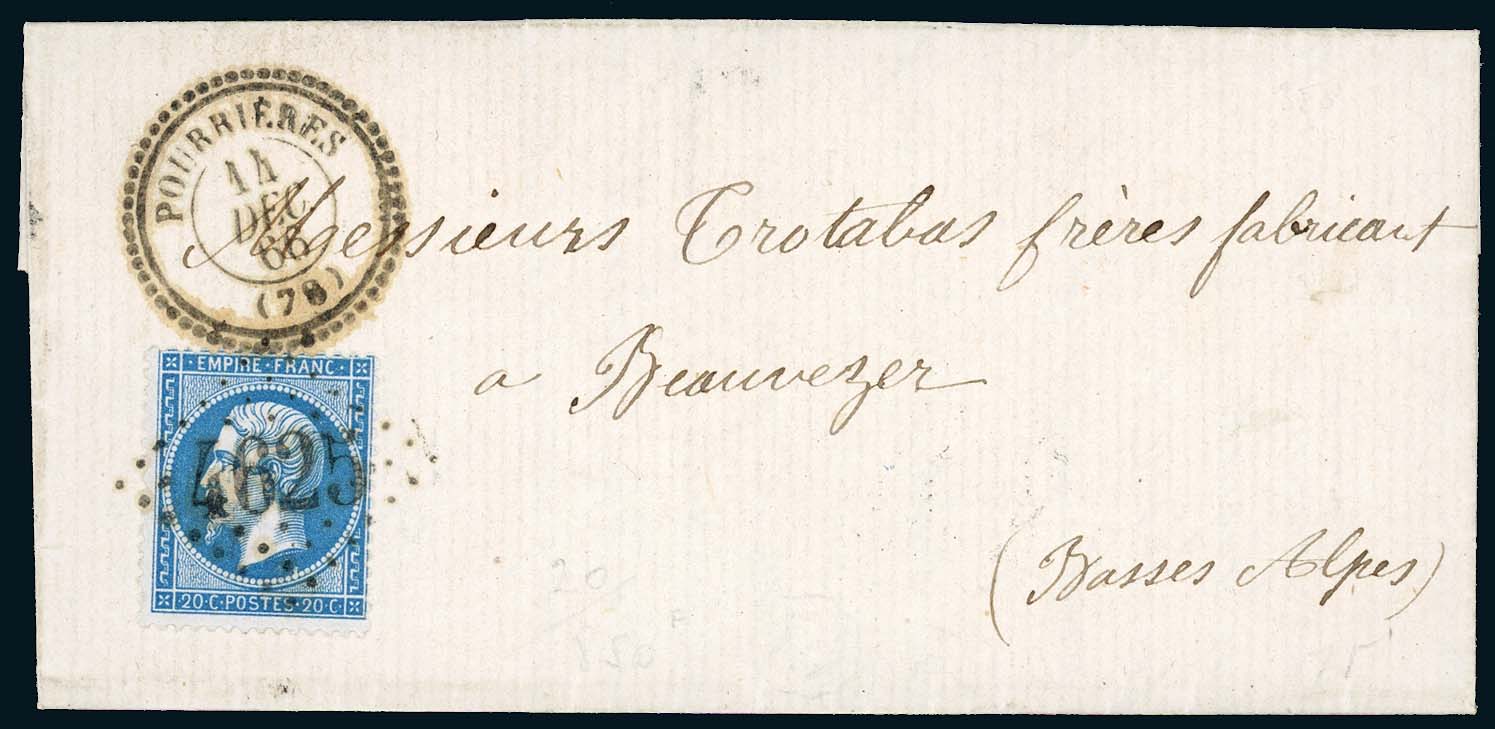 POURRIÈRES
14
DEC
66
(78)
Messieurs Trotabas frères fabricant
a Beauvezer
(Basses Alpes)
EMPIRE·FRANC·
4625
20·C·POSTES·20·C·